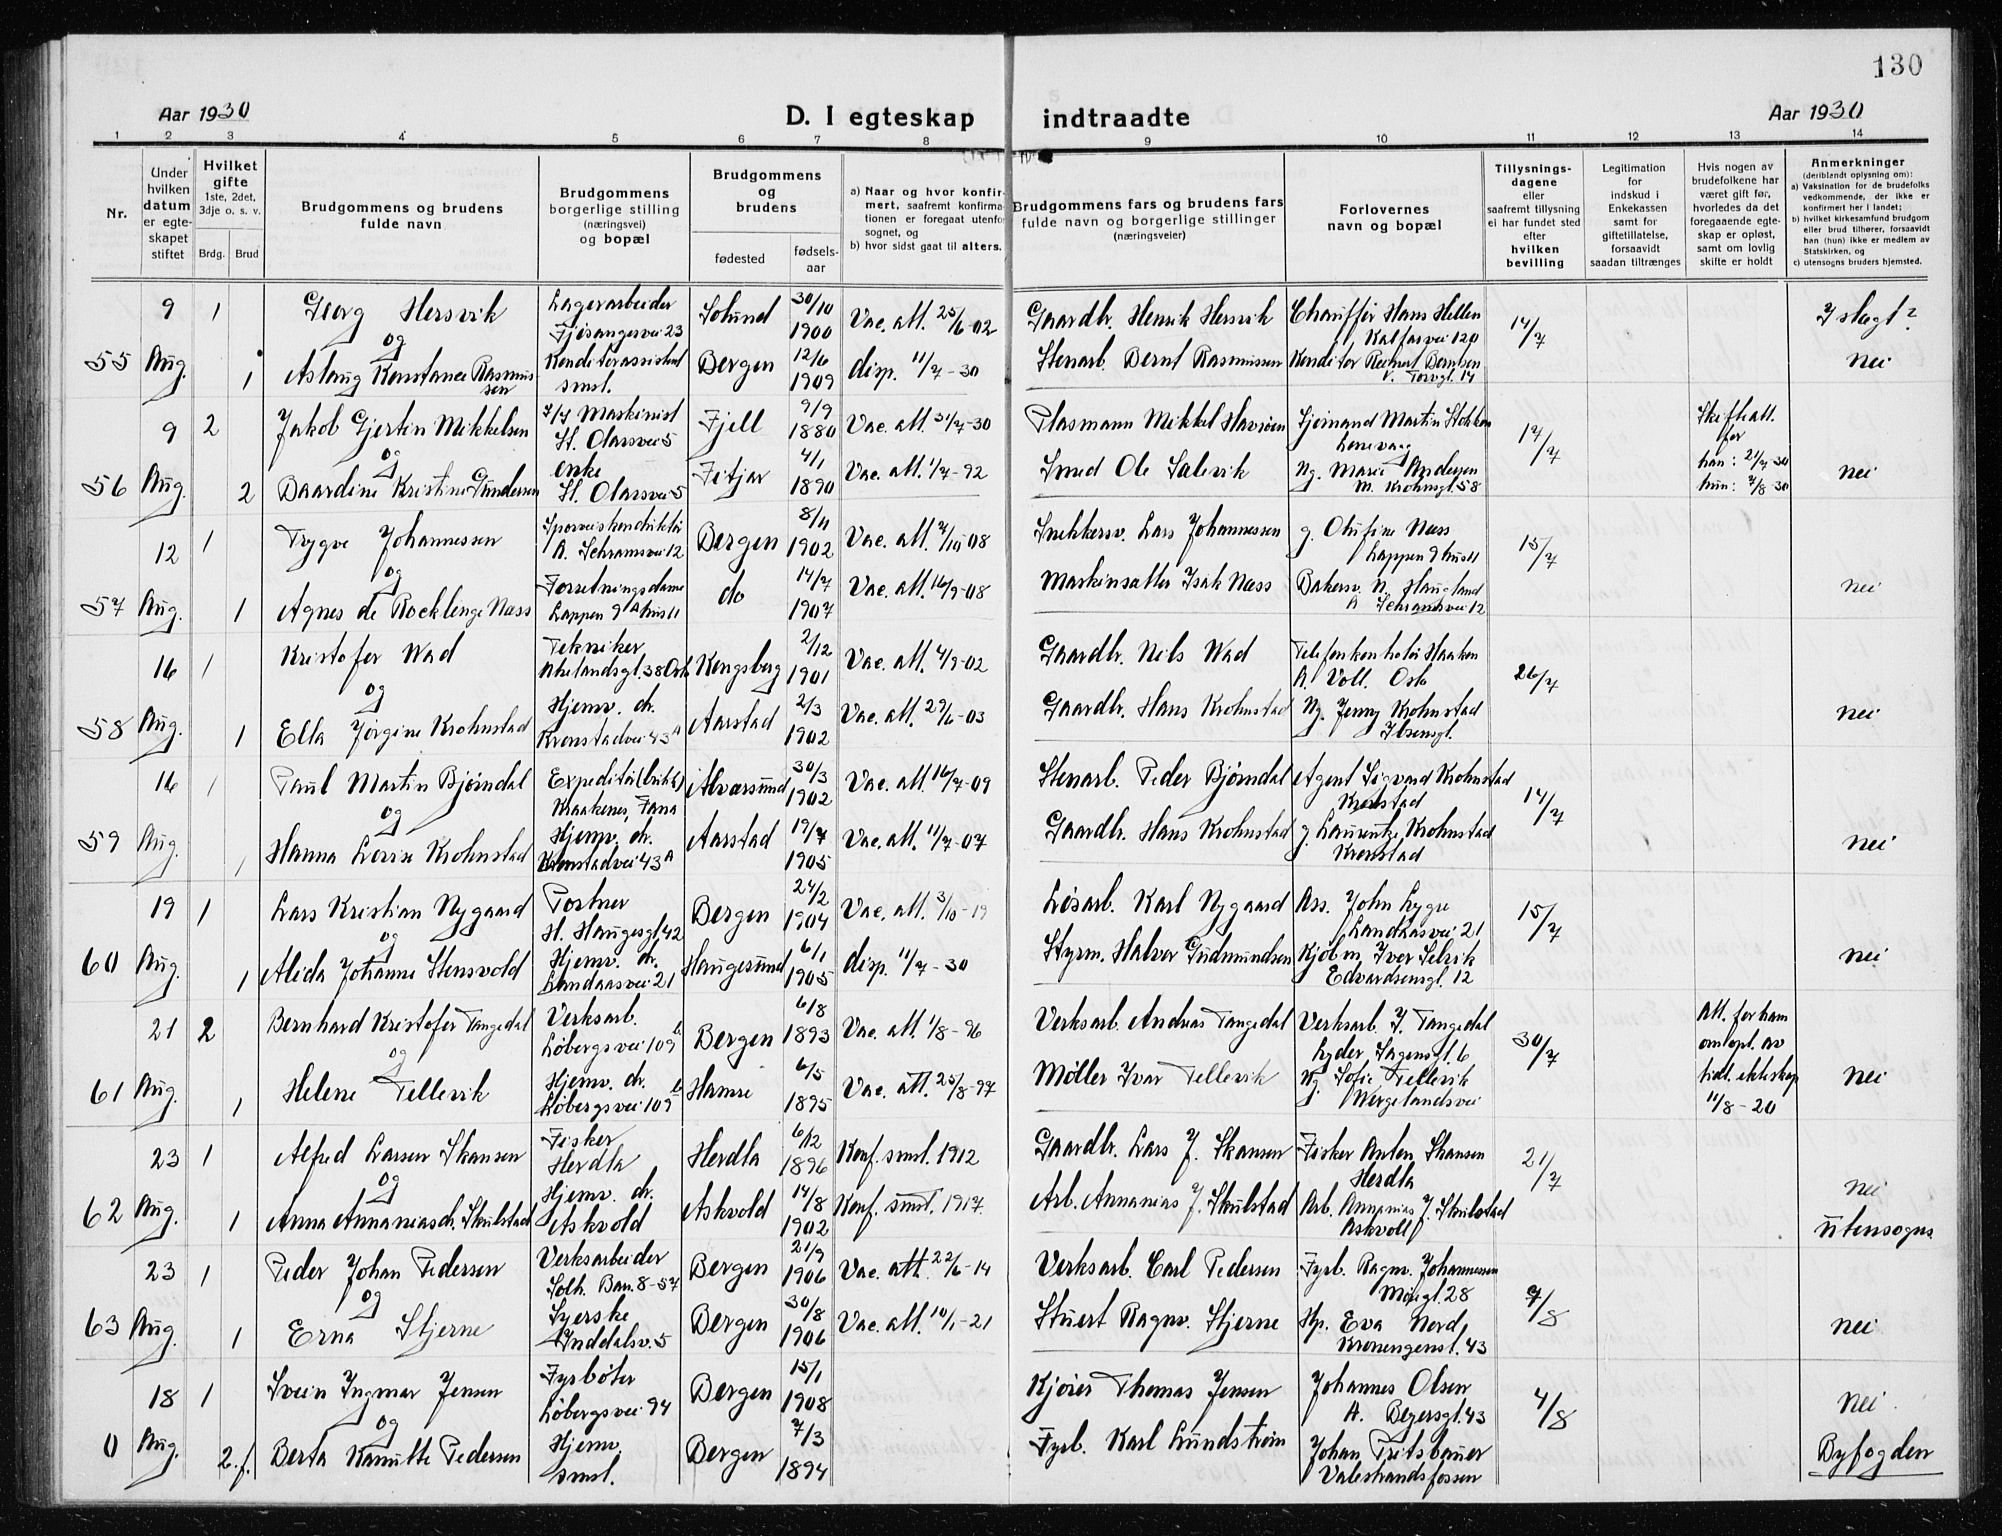 130
Aar 1930
D. I egteskap indtraadte
Aar 1930
1 2 3 4 5 6 7 8 9 10 11 12 13 14
Nr.
Under hvilken datum er egte-skapet stiftet
Hvilket gifte 1ste, 2det, 3dje o. s. v.
Brdg. Brud
Brudgommens og brudens fulde navn
Brudgommens borgerlige stilling (næringsvei) og bopæl
Brudgommens og brudens
fødested
fødsels-aar
a) Naar og hvor konfir-mert, saafremt konfirma-tionen er foregaat utenfo sognet, og
b) hvor sidst gaat til alters.
Brudgommens fars og brudens fars fulde navn og borgerlige stillinger (næringsveier)
Forlovernes navn og bopæl
Tillysnings-dagene eller saafremt tillysning ei har fundet sted efter hvilken bevilling
Legitimation for indskud i Enkekassen samt for giftetillatelse, forsaavidt saadan tiltrænges
Hvis nogen av brudefolkene har været gift før, hvorledes da det foregaaende egte-skap er opløst, samt om lovlig skifte er holdt
Anmerkninger (deriblandt oplysning om):
a) Vaksination for de brudefolks vedkommende, der ikke er konfirmert her i landet;
b) hvilket kirkesamfund brudgom eller brud tilhører, forsaavidt han (hun) ikke er medlem av Statskirken, og
c) utensogns bruders hjemsted.
55 9 Aug. 1 Georg Hersvik Lagerarbeider Fjøsangervei 23 Solund 30/10 1900 Vac. att. 25/6-02 Gaardbr. Henrik Hersvik Chauffør Hans Hellen Kalfarvei 120 14/7 I slegt?
og
1 Aslaug Konstance Rasmussen Konditorassistent smst. Bergen 12/6 1909 disp. 11/7-30 Stenarb. Bernt Rasmussen Konditor Berntsen V. Torvgt. 14 nei
56 9 Aug. 2 Jakob Gjertin Mikkelsen Maskinist St. Olavsvei 5 Fjell 9/9 1880 Vac. att. 31/7-30 Plasmann Mikkel Havsøen Sjømand Martin Stokken 17/7 Skifteatt. for han: 21/7-30 hun: 7/8-30
og
2 Baardine Kristine Gundersen enke St. Olavsvei 5 Fitjar 4/1 1890 Vac. att. 1/7-92 Smed Ole Salevik Ng. Marie Andersen M. Krohnsgt. 58 nei
57 12 Aug. 1 Trygve Johannessen Sporveiskonduktør A. Schramsvei 12 Bergen 8/11 1902 Vac. att. 7/10-08 Snekkersv. Lars Johannessen g. Olufine Næss Lappen 9 hus 11 15/7
og
1 Agnes de Rocklenge Næss Forretningsdame Lappen 9 A hus 11 do 14/7 1907 Vac. att. 16/9-08 Maskinsætter Isak Næss Bakersv. N. Haugland A. Schramsvei 12 nei
58 16 Aug. 1 Kristofer Wad Tekniker Akelandsgt. 38 Oslo Kongsberg 2/12 1901 Vac. att. 4/9-02 Gaardbr. Nils Wad Telefonkontolør Haakon A. Voll. Oslo 26/7
og
1 Ella Jørgine Krohnstad Hjemv. dr. Kronstadvei 43 A Aarstad 2/3 1902 Vac. att. 29/6-03 Gaardbr. Hans Krohnstad Ng. Jenny Krohnstad Ibsensgt. nei
59 16 Aug. 1 Paul Martin Bjørndal Expeditør (butikk) Kraakenes, Fana Alversund 30/3 1902 Vac. att. 16/7-09 Stenarb. Peder Bjørndal Agent Sigvard Krohnstad Kronstad 14/7
og
1 Hanna Lovise Krohnstad Hjemv. dr. Kronstadvei 43 A Aarstad 19/7 1905 Vac. att. 11/7-07 Gaardbr. Hans Krohnstad g. Laurentze Krohnstad Kronstad nei
60 19 Aug. 1 Lars Kristian Nygaard Portner H. Haugesgt. 42 Bergen 24/2 1904 Vac. att. 3/10-19 Løsarb. Karl Nygaard Ass. John Lygre Landaasvei 21 15/7
og
1 Alida Johanne Stensvold Hjemv. dr. Landaasvei 21 Haugesund 6/1 1905 disp. 11/7-30 Styrm. Halvor Gudmundsen Kjøbm. Iver Selvik Edvardsensgt. 12 nei
61 21 Aug. 2 Bernhard Kristofer Tangedal Verksarb. Løbergsvei 109 b Bergen 6/8 1893 Vac. att. 1/8-96 Verksarb. Andreas Tangedal Verksarb. J. Tangedal Lyder Sagensgt. 6 30/7 Att. for ham om opl. av tidl. ekteskap 11/8-20
og
1 Helene Tellevik Hjemv. dr. Løbergsvei 109 b Hamre 6/5 1895 Vac. att. 25/8-97 Møller Ivar Tellevik Ng. Sofie Tellevik Wergelandsvei nei
62 23 Aug. 1 Alfred Larsen Skansen Fisker Herdla Herdla 6/12 1896 Konf. smst. 1912 Gaardbr. Lars J. Skansen Fisker Anton Skansen Herdla 21/7
og
1 Anna Annaniasdr. Skulstad Hjemv. dr. Askvold Askvold 14/8 1902 Konf. smst. 1917. Arb. Annanias J. Skulstad Arb. Annanias J. Skulstad Askvoll nei utensogns
63 23 Aug. 1 Peder Johan Pedersen Verksarbeider Solh. Ban. 8-57 Bergen 21/9 1906 Vac. att. 22/6-14 Verksarb. Carl Pedersen Fyrb. Ragnv. Johannessen 28 7/8
og
1 Erna Stjerne Syerske Inddalsv. 5 Bergen 30/8 1906 Vac. att. 10/1-21 Stuert Ragnv. Stjerne Hp. Eva Nord, Kronengenst. 43 nei
0 18 Aug. 1 Svein Ingmar Jensen Fyrbøter Løbergsvei 94 Bergen 15/1 1908 Kjører Thomas Jensen Johannes Olsen A. Beyersgt. 43 4/8 nei.
og
2. f. Berta Kamitte Pedersen Hjemv. smst. Bergen 7/3 1894 Fyrb. Karl Lundstrøm Johan Fritsbauer Valestrandsfossen Byfogden